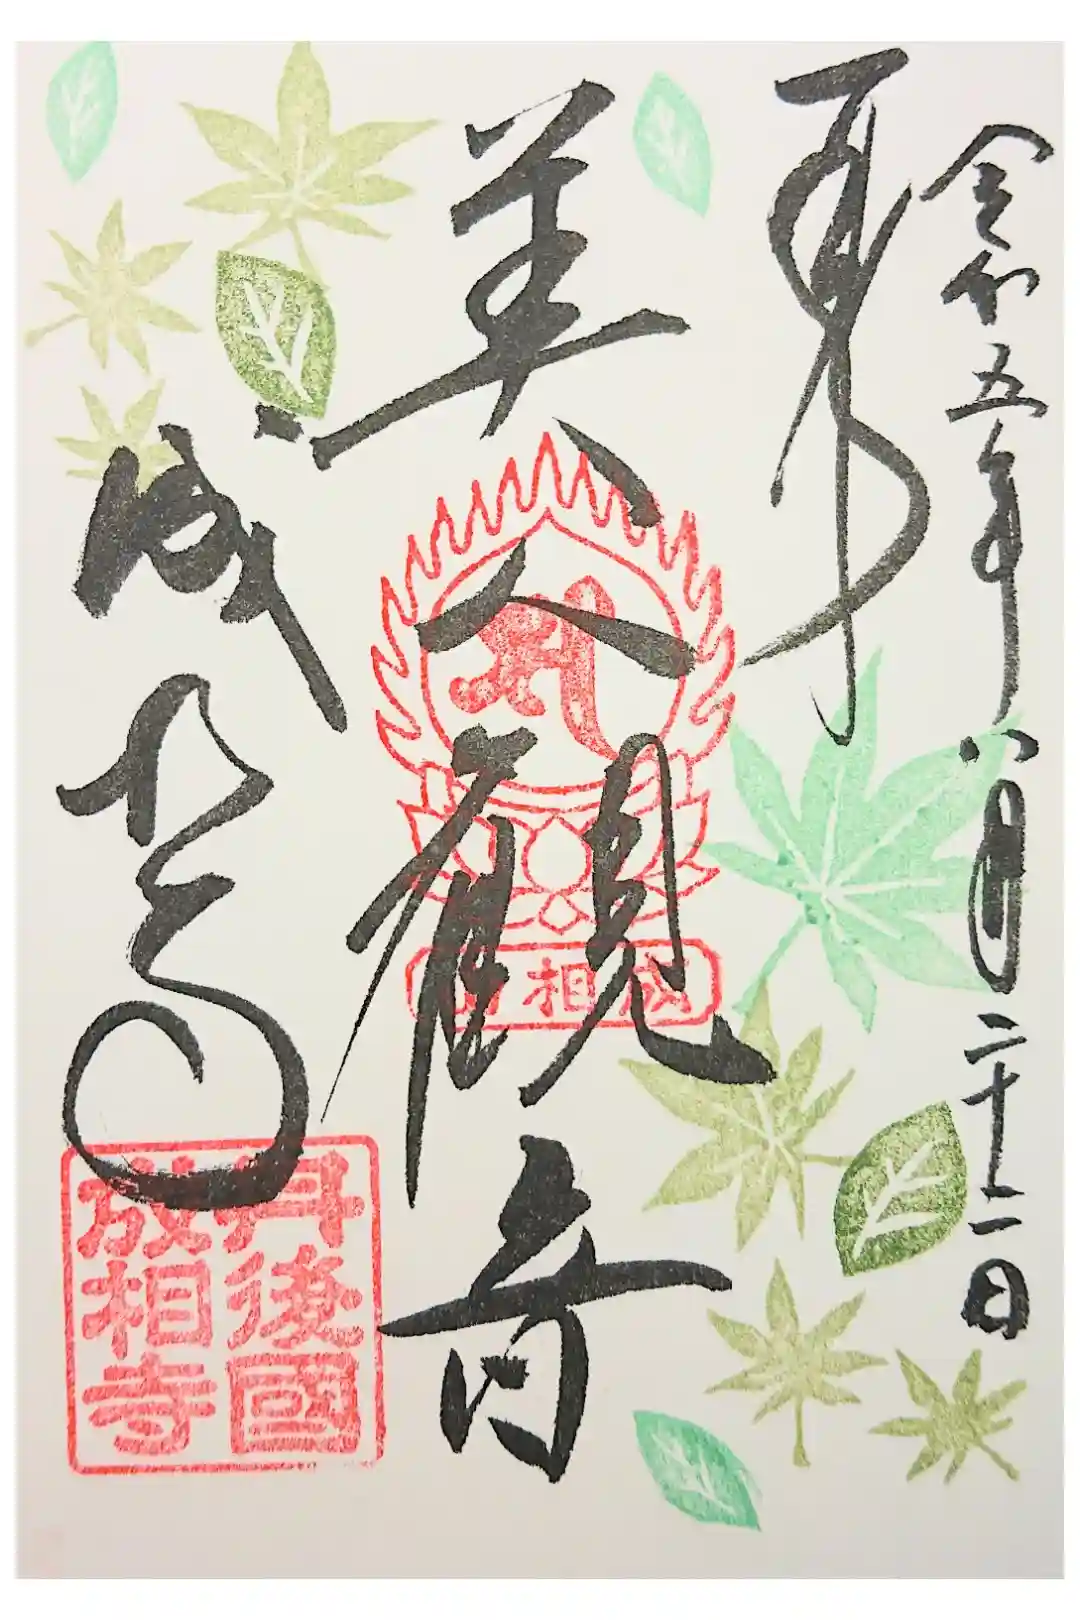 令和五年八月二十二日
奉拝
美人観音
成相寺
成相寺
丹後國
成相寺